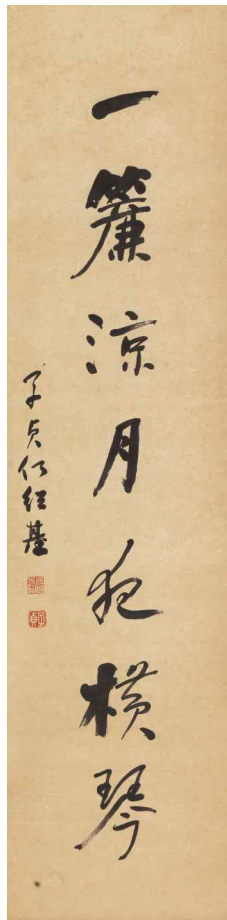 一簾涼月夜橫琴
子貞何紹基